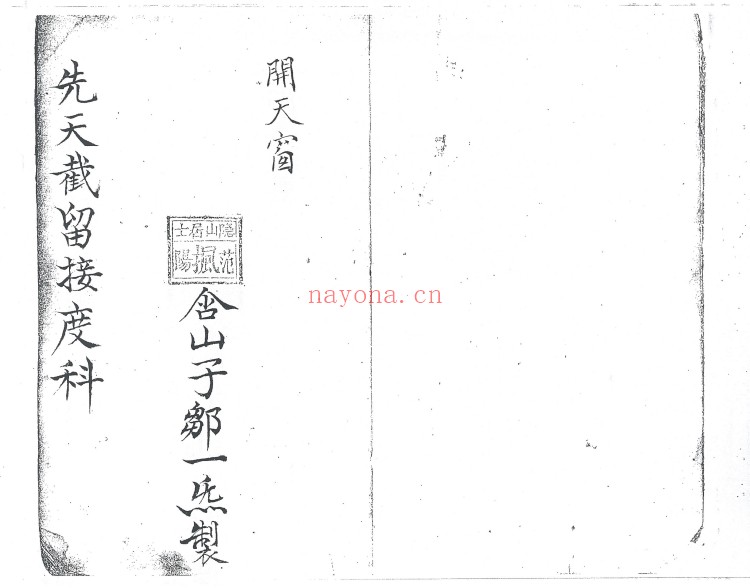 開天窗
隐山居士
范
陽
含山子鄒一炁製
先天截留接度科
nayona.cn